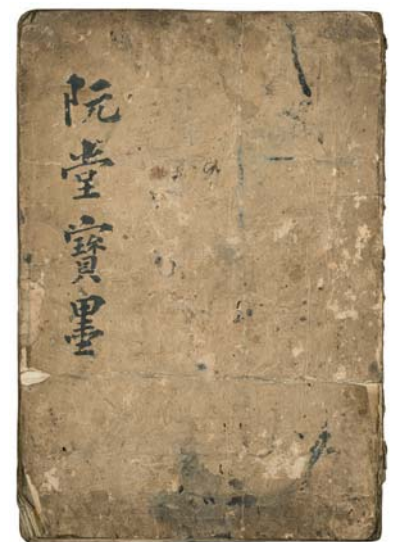 阮堂寶墨